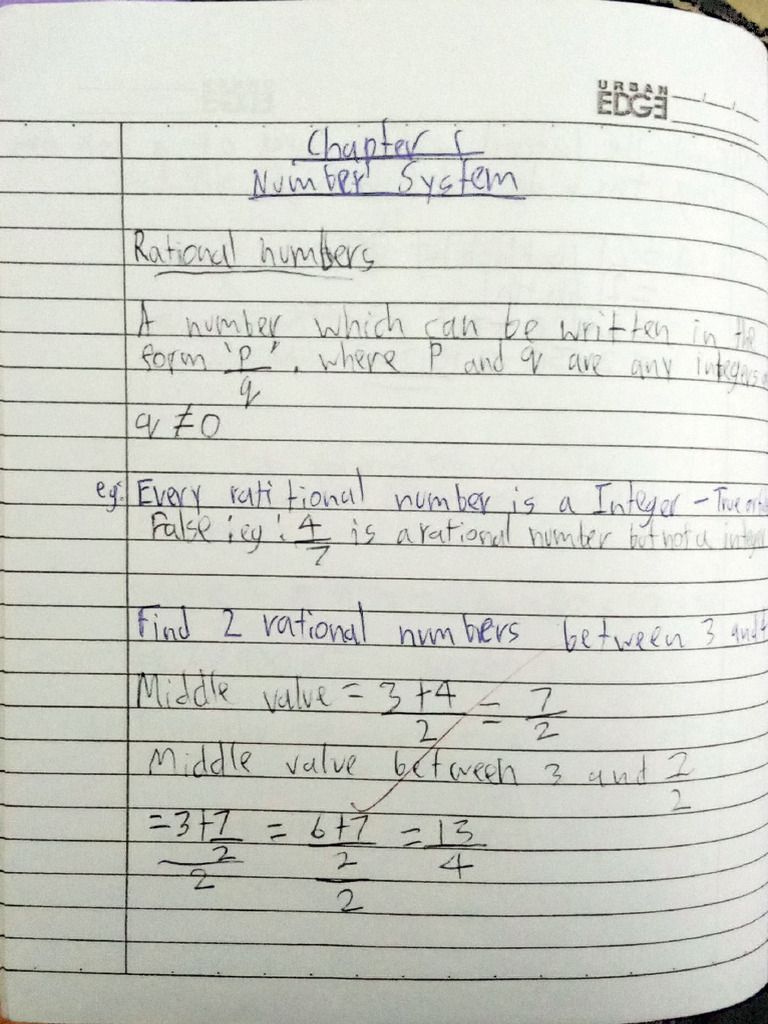 URBAN
EDGE
Chapter 1
Number System
Rational numbers
A number which can be written in the
form 'p/q', where P and q are any integers
q ≠ 0
eg: Every rati tional number is a Integer - True or
False : eg : 4/7 is a rational number but not a integer
Find 2 rational numbers between 3 and
Middle value = 3+4/2 = 7/2
Middle value between 3 and 7/2
= 3+7/2/2 = 6+7/2/2 = 13/4